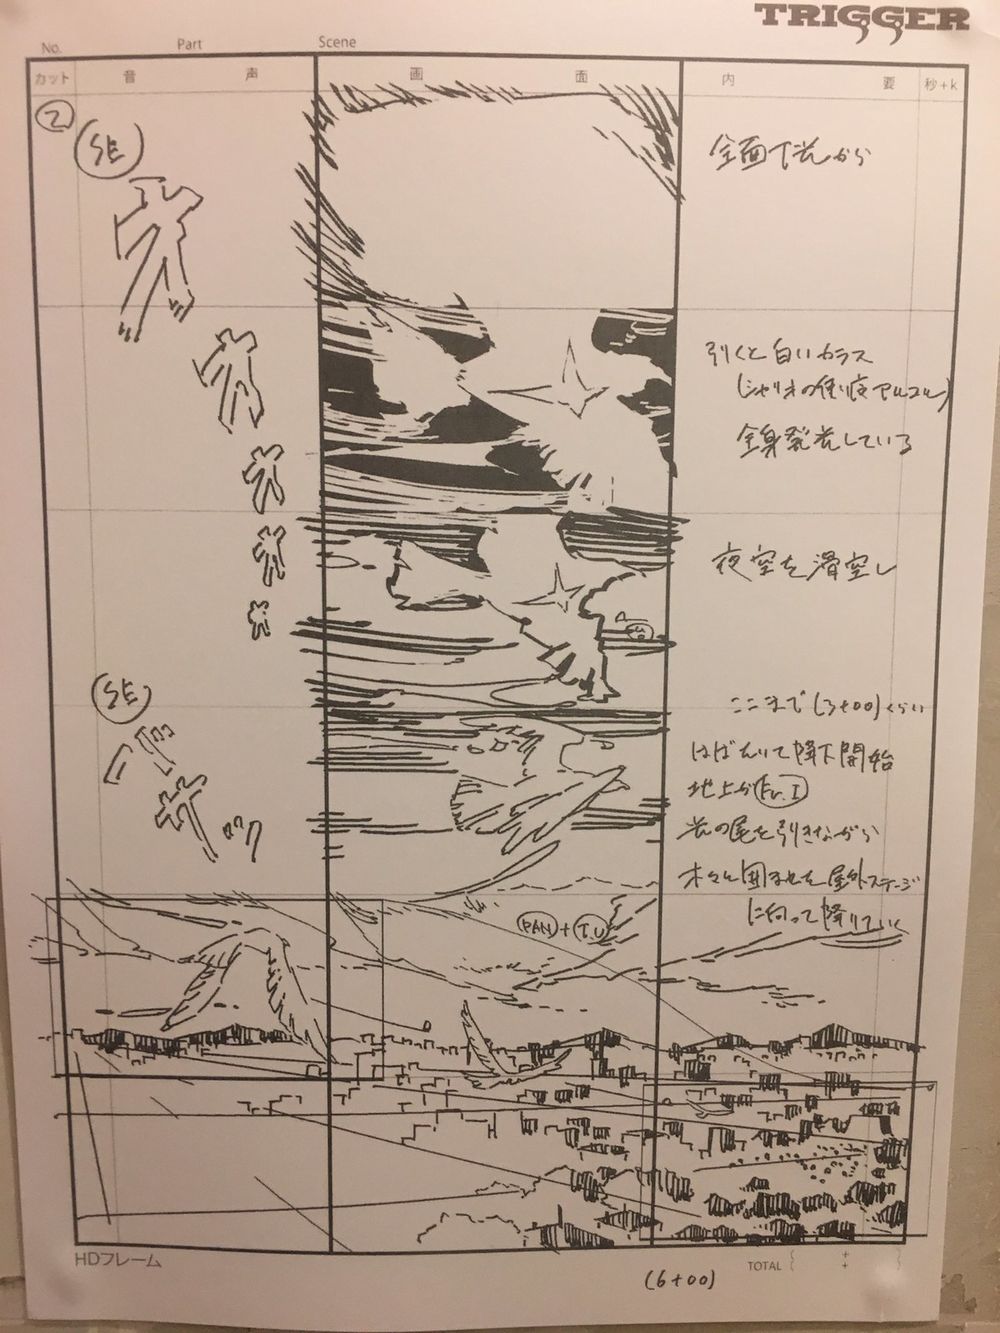 TRIGGER
No. Part Scene
カット 音 声 画 面 内 要 秒+k
2
SE
全面下光から
引くと白いカラス
全身発光している
夜空を滑空し
ここまで(3+00)くらい
SE
バ
サ
ッ
はばたいて降下開始
地上が Fr.I
光の尾を引きながら
木々に囲まれた屋外ステージ
に向って降りていく
PAN + T.U
HDフレーム
(6+00)
TOTAL ( + )